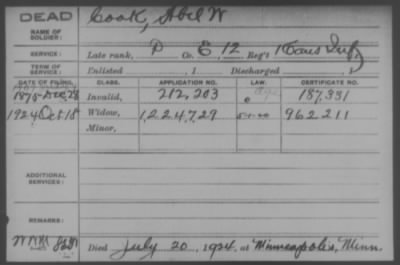 DEAD
NAME OF SOLDIER: Cook, Abel W
SERVICE: Late rank, P Co. E, 12 Reg't Kans Inf
TERM OF SERVICE: Enlisted , 1 Discharged , 1
DATE OF FILING. CLASS. APPLICATION NO. LAW. CERTIFICATE NO.
1875 Dec 28 Invalid, 212,203 187,331
1924 Oct 18 Widow, 1,224,729 962211
Minor,
ADDITIONAL SERVICES:
REMARKS:
Died July 20, 1924, at Minneapolis, Minn.